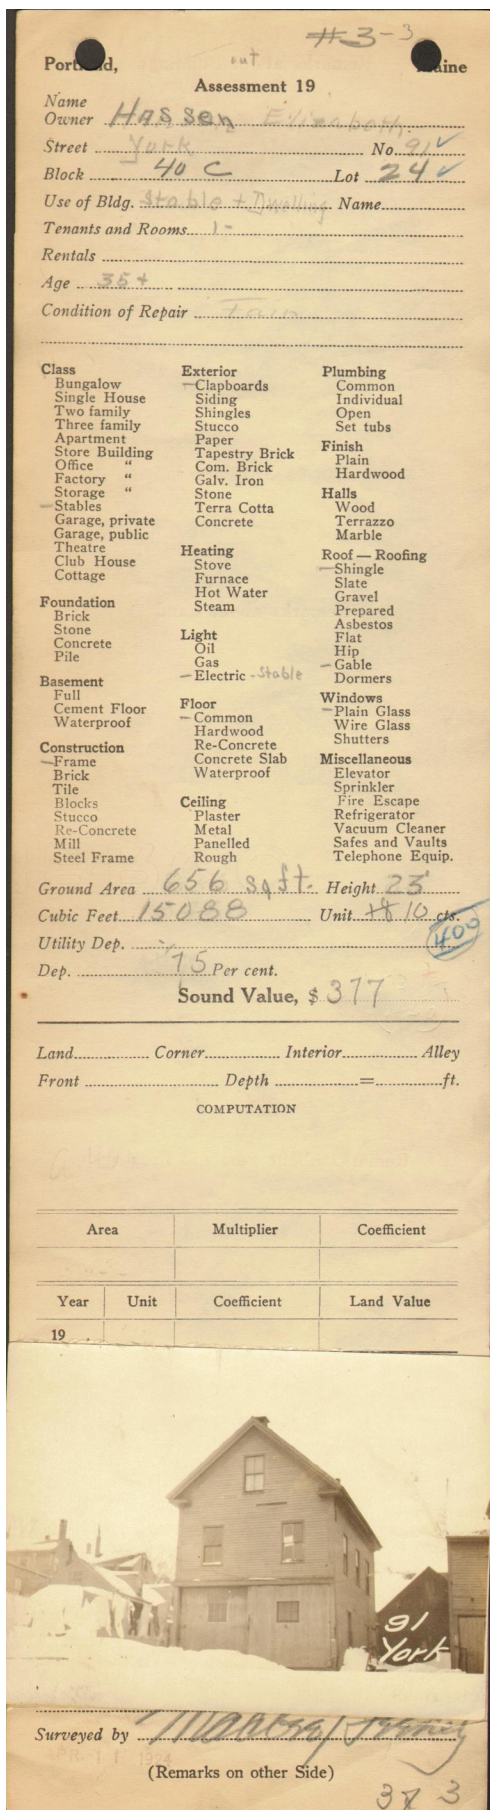 #3-3
out
Portland, Maine
Assessment 19
Name
Owner Hassen Elizabeth
Street York No. 91
Block 40 C Lot 24
Use of Bldg. Stable + Dwelling Name
Tenants and Rooms 1-
Rentals
Age 35+
Condition of Repair Fair
Class
Bungalow
Single House
Two family
Three family
Apartment
Store Building
Office "
Factory "
Storage "
Stables
Garage, private
Garage, public
Theatre
Club House
Cottage
Foundation
Brick
Stone
Concrete
Pile
Basement
Full
Cement Floor
Waterproof
Construction
Frame
Brick
Tile
Blocks
Stucco
Re-Concrete
Mill
Steel Frame
Exterior
Clapboards
Siding
Shingles
Stucco
Paper
Tapestry Brick
Com. Brick
Galv. Iron
Stone
Terra Cotta
Concrete
Heating
Stove
Furnace
Hot Water
Steam
Light
Oil
Gas
Electric - Stable
Floor
Common
Hardwood
Re-Concrete
Concrete Slab
Waterproof
Ceiling
Plaster
Metal
Panelled
Rough
Plumbing
Common
Individual
Open
Set tubs
Finish
Plain
Hardwood
Halls
Wood
Terrazzo
Marble
Roof — Roofing
Shingle
Slate
Gravel
Prepared
Asbestos
Flat
Hip
Gable
Dormers
Windows
Plain Glass
Wire Glass
Shutters
Miscellaneous
Elevator
Sprinkler
Fire Escape
Refrigerator
Vacuum Cleaner
Safes and Vaults
Telephone Equip.
Ground Area 656 sq ft. Height 23'
Cubic Feet 15088 Unit 10 cts.
400
Utility Dep.
Dep. 75 Per cent.
Sound Value, $ 377
Land Corner Interior Alley
Front Depth = ft.
COMPUTATION
Area Multiplier Coefficient
Year Unit Coefficient Land Value
19
91
York
Surveyed by
1924
(Remarks on other Side)